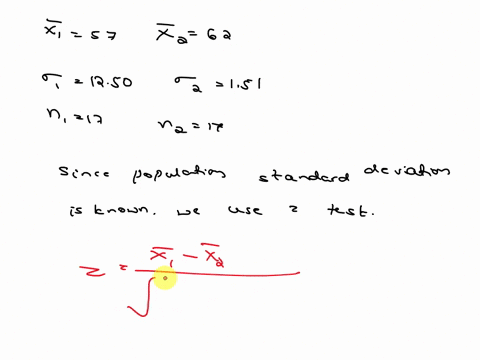 x̄₁ = 57 x̄₂ = 62
σ₁ = 12.50 σ₂ = 1.51
n₁ = 17 n₂ = 17
Since population standard deviation
is known. we use z test.
z = x̄₁ - x̄₂
√